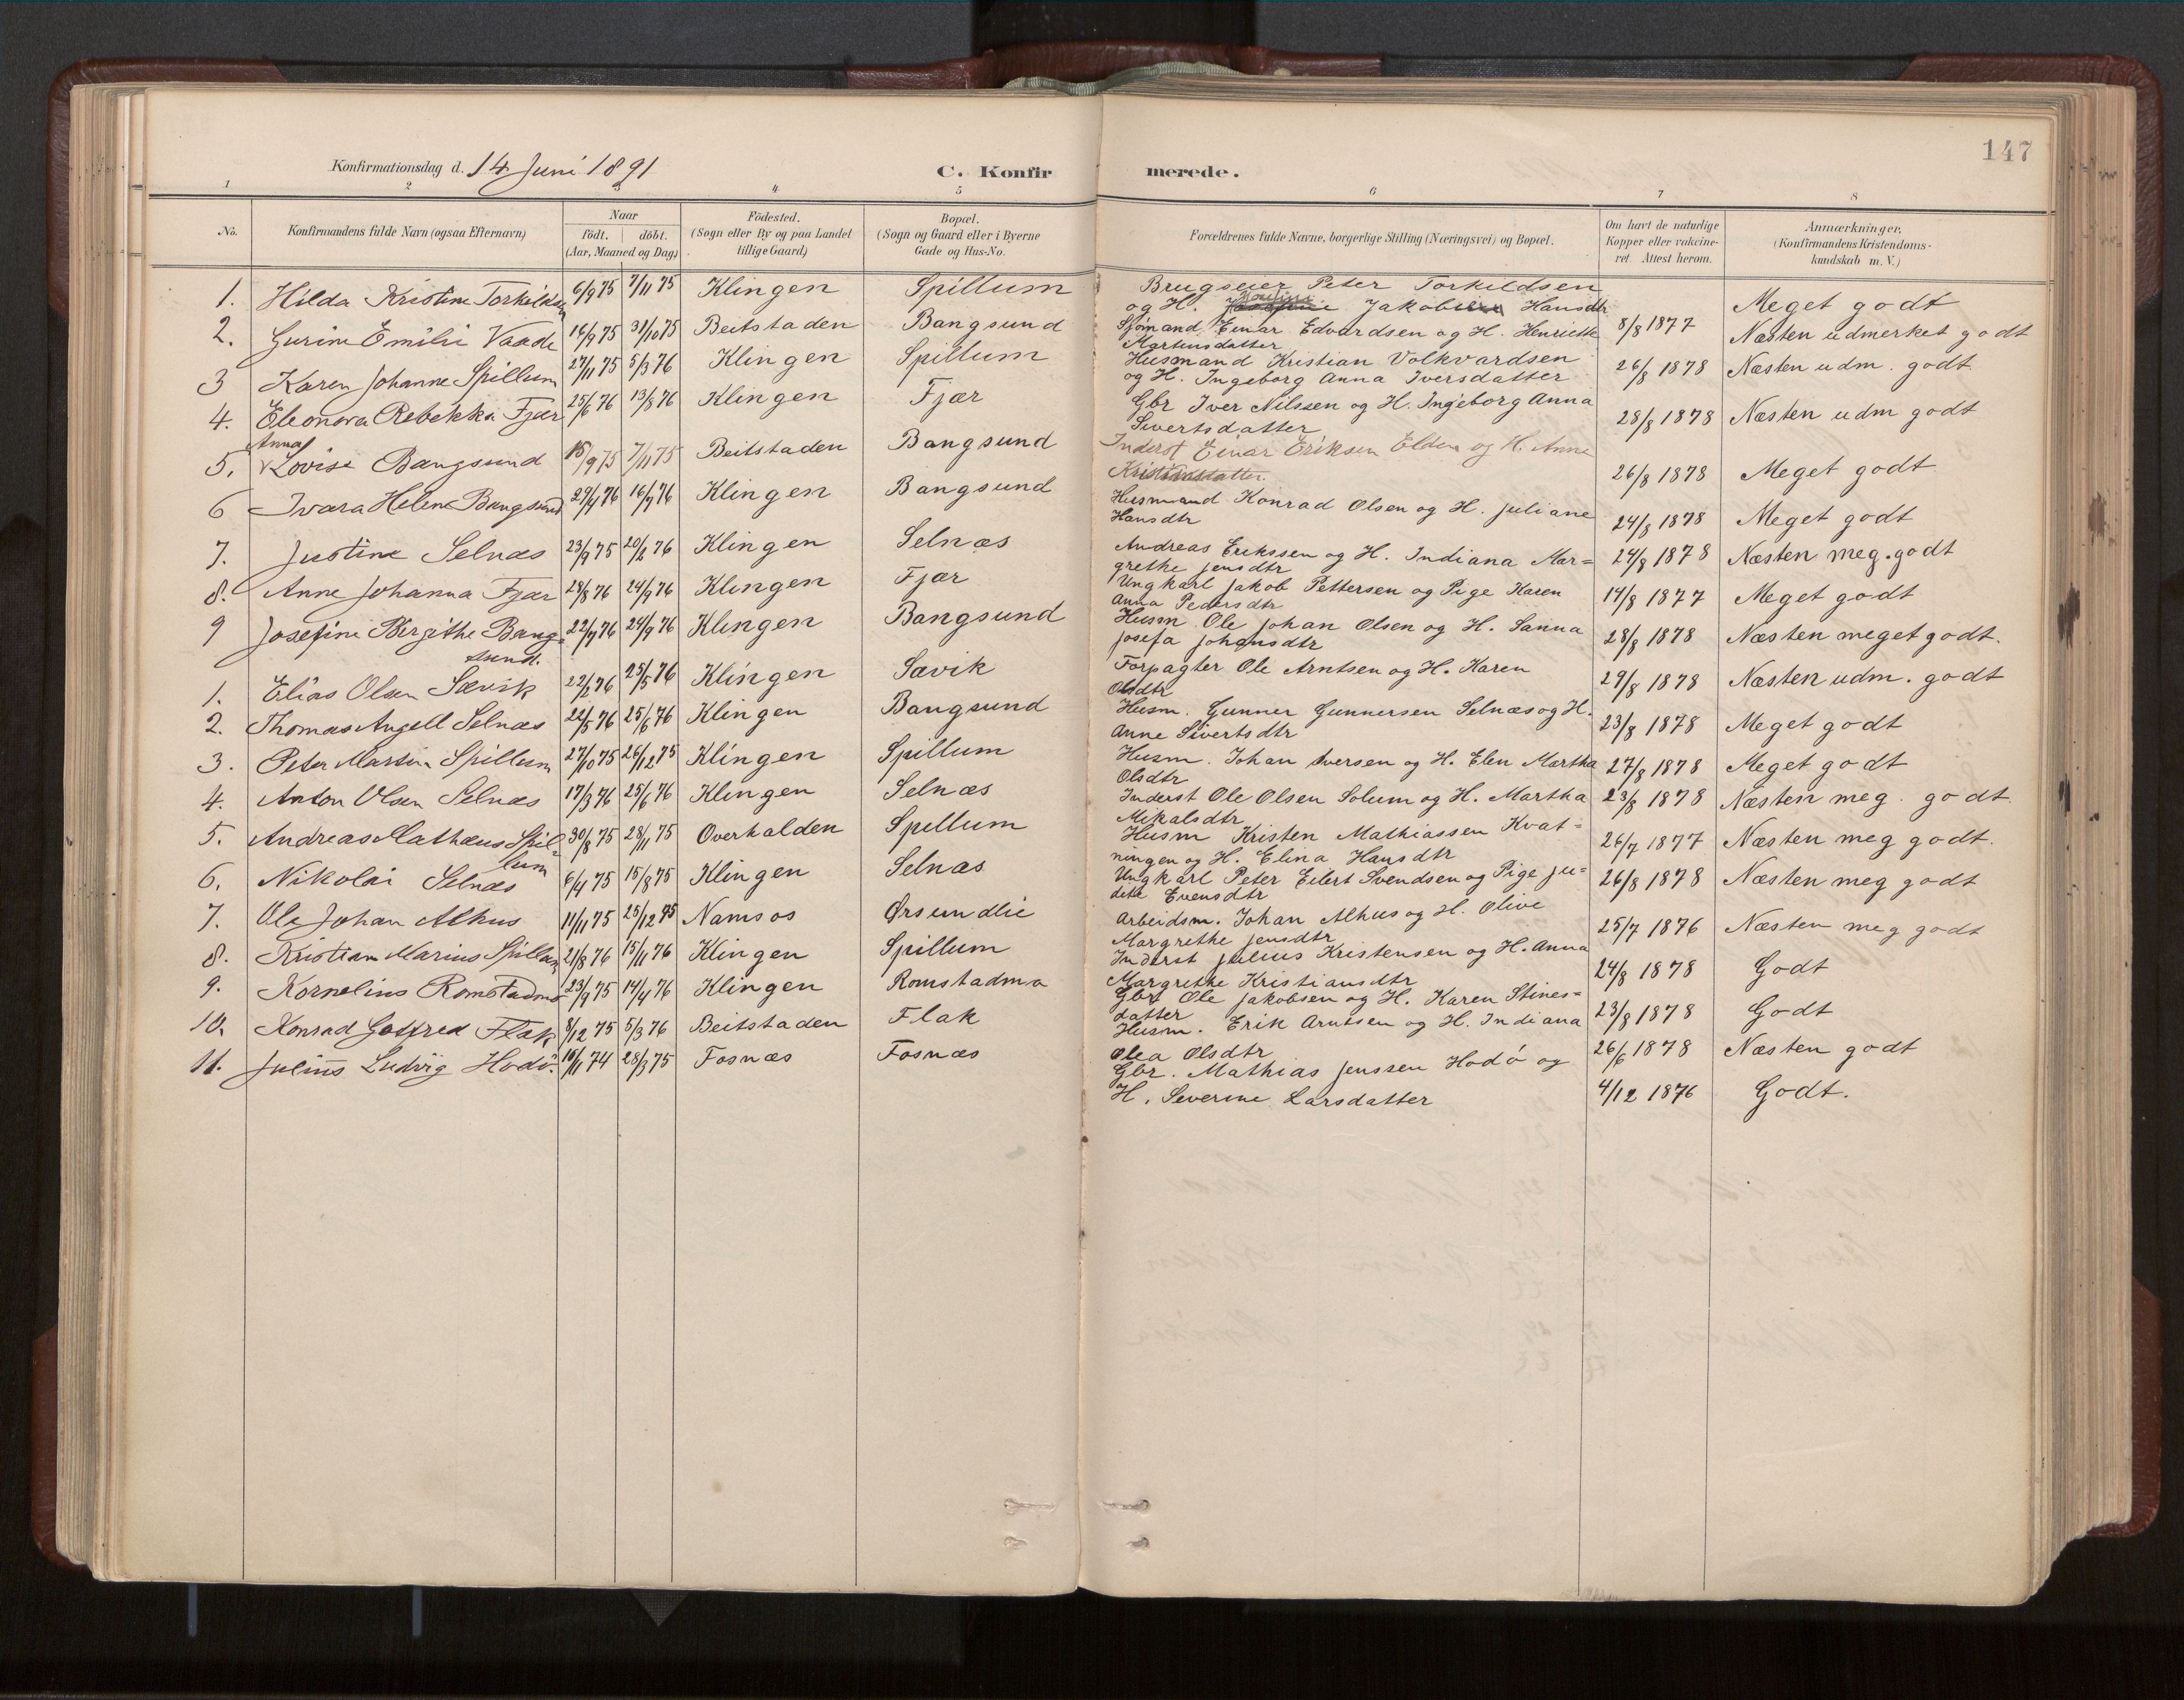 147
Konfirmationsdag d. 14 Juni 1891
C. Konfir merede.
1 2 3 4 5 6 7 8
No. Konfirmandens fulde Navn (ogsaa Efternavn) Naar Födt. döbt. (Aar, Maaned og Dag) Födested. (Sogn eller By og paa Landet tillige Gaard) Bopæl. (Sogn og Gaard eller i Byerne Gade og Hus-No. Forældrenes fulde Navne, borgerlige Stilling (Næringsvei) og Bopæl. Om havt de naturlige Kopper eller vakcineret. Attest herom. Anmærkninger. (Konfirmandens Kristendomskundskab m. V.)
1. Hilda Kristine Torkildsen 6/9 75 7/11 75 Klingen Spillum Brugseier Peter Torkildsen
og H. Jakobine Hansdtr 8/8 1877 Meget godt
2. Gurine Emilie Vaade 16/9 75 31/10 75 Beitstaden Bangsund Sjömand Einar Edvardsen og H. Henriette
Martinsdatter Næsten udmerket godt
3 Karen Johanne Spillum 27/11 75 5/3 76 Klingen Spillum Husmand Kristian Volkvardsen
og H. Ingeborg Anna Iversdatter 26/8 1878 Næsten udm. godt.
4. Eleonora Rebekka Fjær 25/6 76 13/8 76 Klingen Fjær Gbr Iver Nilssen og H. Ingeborg Anna
Sivertsdatter 28/8 1878 Næsten udm godt
Anna
5. Lovise Bangsund 15/9 75 7/11 75 Beitstaden Bangsund Inderst Einar Eriksen Elden og H. Anne
Kristiansdatter. 26/8 1878 Meget godt
6 Ivara Helene Bangsund 29/4 76 16/7 76 Klingen Bangsund Husmand Konrad Olsen og H. Juliane
Hansdtr 24/8 1878 Meget godt
7. Justine Selnæs 23/9 75 20/2 76 Klingen Selnæs Andreas Erikssen og H. Indiana Mar=
grethe Jensdtr 24/8 1878 Næsten meg. godt
8. Anne Johanna Fjær 28/8 76 24/9 76 Klingen Fjær Ungkarl Jakob Pettersen og Pige Karen
Anna Pedersdtr 14/8 1877 Meget godt
9 Josefine Birgithe Bang=
sund. 22/7 76 24/9 76 Klingen Bangsund Husm. Ole Johan Olsen og H. Sanna
Josefa Johansdtr 28/8 1878 Næsten meget godt.
1. Elias Olsen Sævik 22/2 76 25/5 76 Klingen Sævik Forpagter Ole Arntsen og H. Karen
Olsdtr 29/8 1878 Næsten udm. godt
2. Thomas Angell Selnæs 22/5 76 25/6 76 Klingen Bangsund Husm. Gunner Gunnersen Selnæs og H.
Anne Sivertsdtr 23/8 1878 Meget godt
3. Peter Martin Spillum 27/10 75 26/12 75 Klingen Spillum Husm. Johan Iversen og H. Elen Martha
Olsdtr 27/8 1878 Meget godt
4. Anton Olsen Selnæs 17/3 76 25/6 76 Klingen Selnæs Inderst Ole Olsen Solum og H. Martha
Mikalsdtr 23/8 1878 Næsten meg. godt.
5. Andreas Mathæus Spil=
lum 30/8 75 28/11 75 Overhalden Spillum Husm Kristen Mathiassen Kvat=
ningen og H. Elina Hansdtr 26/7 1877 Næsten meg godt.
6. Nikolai Selnæs 6/4 75 15/8 75 Klingen Selnæs Ungkarl Peter Eilert Svendsen og Pige Ju=
dite Evensdtr 26/8 1878 Næsten meg godt
7. Ole Johan Alhus 11/11 75 25/12 75 Namsos Ørsundlie Arbeidsm. Johan Alhus og H. Olive
Margrethe Jensdtr 25/7 1876 Næsten meg godt
8. Kristian Marius Spillum 21/8 76 15/11 76 Klingen Spillum Inderst Julius Kristensen og H. Anna
Margrethe Kristiansdtr 24/8 1878 Godt
9. Kornelius Romstadmo 23/9 75 14/4 76 Klingen Romstadmo Gbr Ole Jakobsen og H. Karen Stines=
datter 23/8 1878 Godt
10. Konrad Gotfred Flak 8/12 75 5/3 76 Beitstaden Flak Husm. Erik Arntsen og H. Indiana
Olea Olsdtr 26/6 1878 Næsten godt
11. Julius Ludvig Hodö. 16/11 74 28/3 75 Fosnæs Fosnæs Gbr. Mathias Jenssen Hodö og
H. Severine Larsdatter 4/12 1876 Godt.